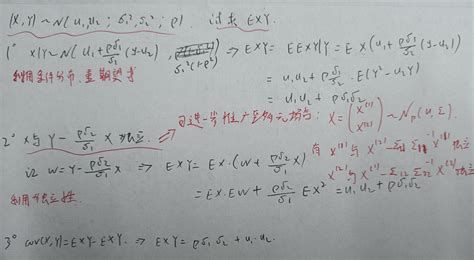 (X,Y)~N(u₁,u₂;δ₁²,δ₂²;ρ) 试求 EXY
1° X|Y~N(u₁+ρδ₁/δ₂(y-u₂), δ₁²(1-ρ²)) ⇒ EXY = EEXY|Y = E Y(u₁+ρδ₁/δ₂(y-u₂))
利用条件分布、重期望
= u₁u₂+ρδ₁/δ₂·E(Y²-u₂Y)
= u₁u₂+ρδ₁δ₂
2° X与Y-ρδ₂/δ₁ X 独立. ⇒ 可进一步推广至多元场合: X=(X⁽¹⁾ X⁽²⁾)~Nₚ(u,Σ).
记 W=Y-ρδ₂/δ₁ X ⇒ EXY=EX·(W+ρδ₂/δ₁ X) 有 X⁽¹⁾与X⁽²⁾-Σ₂₁Σ₁₁⁻¹X⁽¹⁾独立
= EX·EW+ρδ₂/δ₁ EX²=u₁u₂+ρδ₁δ₂ X⁽²⁾与X⁽¹⁾-Σ₁₂Σ₂₂⁻¹X⁽²⁾独立
利用独立性
3° cov(X,Y)=EXY-EXEY. ⇒ EXY=ρδ₁δ₂+u₁u₂.